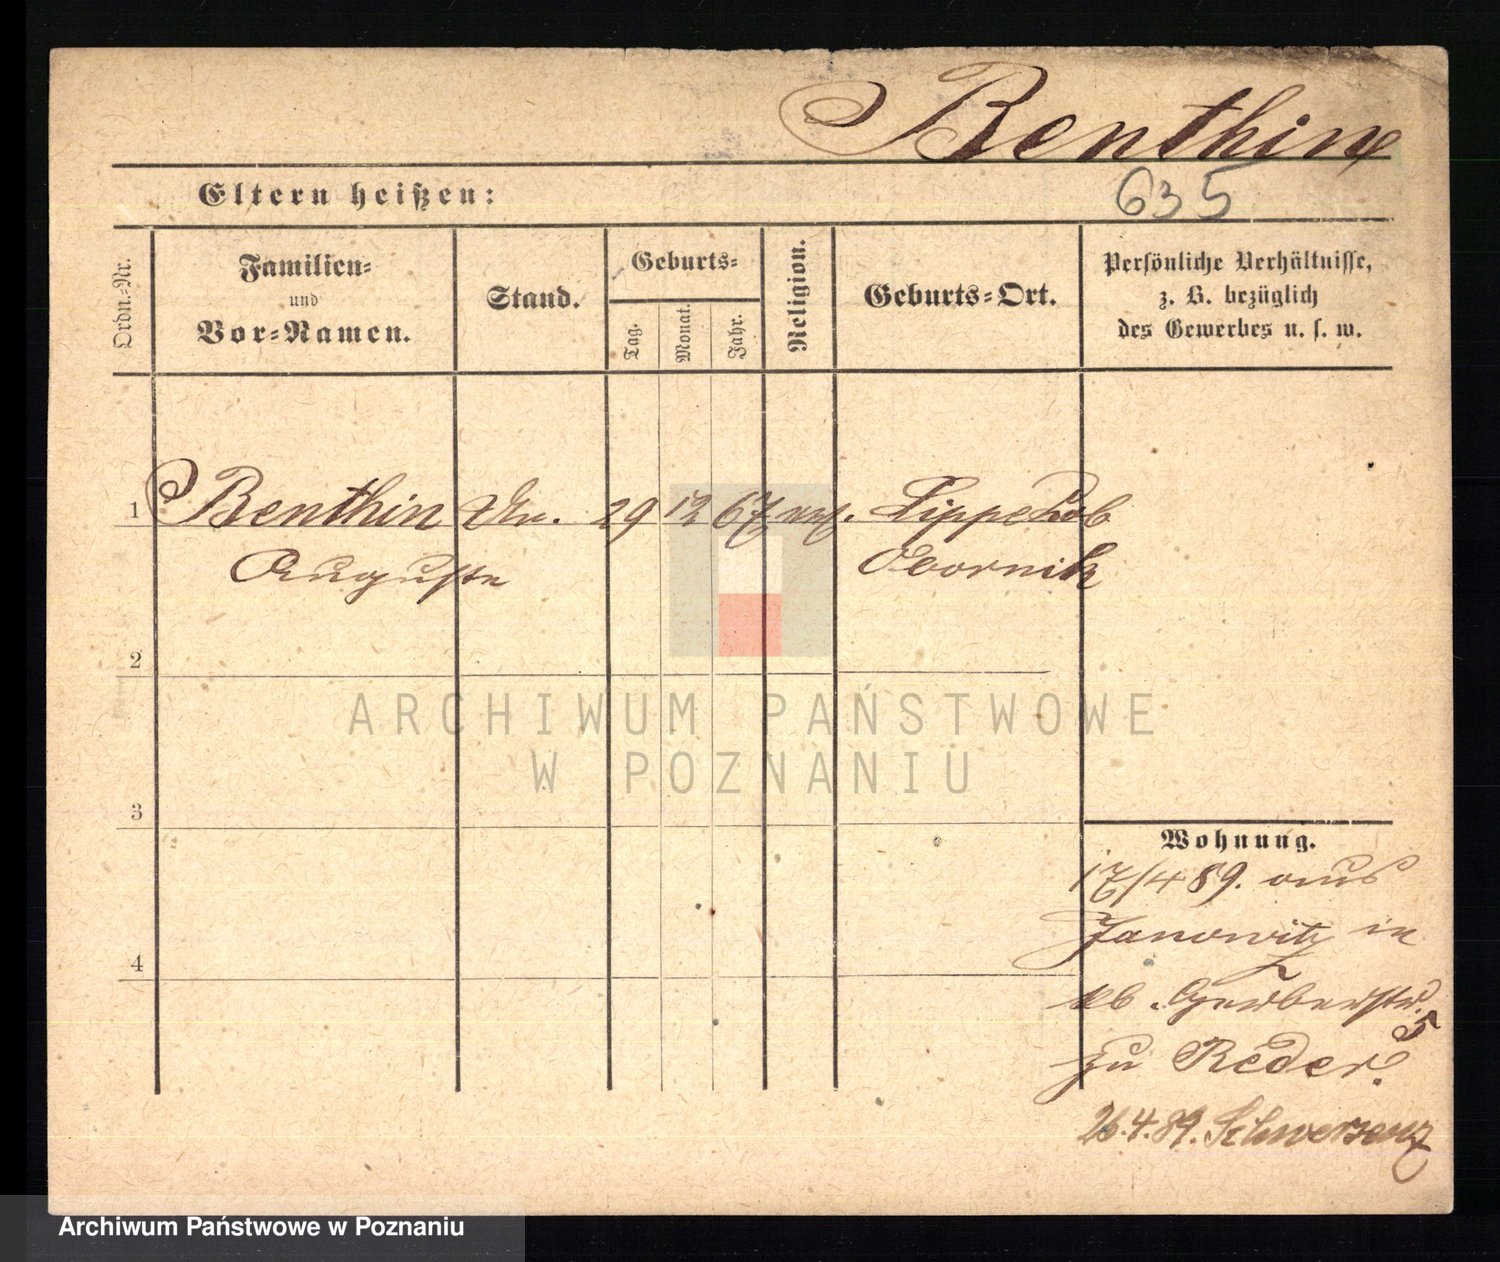 Benthin
635
Eltern heißen:
Ordn.-Nr.
Familien-
und
Vor-Namen.
Stand.
Geburts-
Tag.
Monat.
Jahr.
Religion.
Geburts-Ort.
Persönliche Verhältnisse,
z. B. bezüglich
des Gewerbes u. s. w.
1 Benthin 29 12 67
Auguste Obornik
2
ARCHIWUM PAŃSTWOWE
W POZNANIU
3
4
Wohnung.
17/4 89. aus
Janowitz in
Gerberstr.
5
zu Reder.
26.4.89. Schwersenz
Archiwum Państwowe w Poznaniu